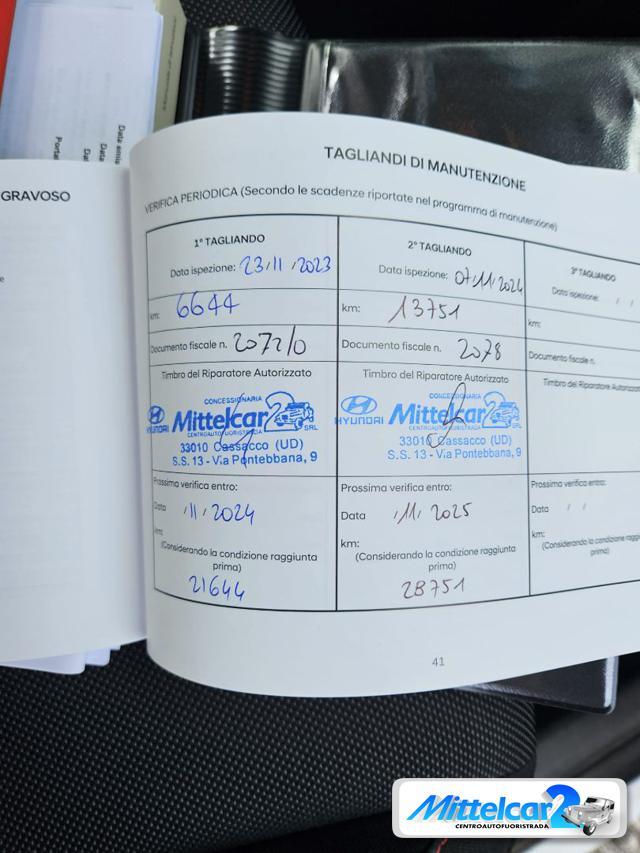 GRAVOSO
TAGLIANDI DI MANUTENZIONE
VERIFICA PERIODICA (Secondo le scadenze riportate nel programma di manutenzione)
1° TAGLIANDO
Data ispezione: 23/11/2023
km: 6644
Documento fiscale n. 2072/0
Timbro del Riparatore Autorizzato
CONCESSIONARIA
HYUNDAI Mittelcar 2 SRL
CENTROAUTOFUORISTRADA
33010 Cassacco (UD)
S.S. 13 - Via Pontebbana, 9
Prossima verifica entro:
Data /11/2024
km:
(Considerando la condizione raggiunta
prima)
21644
2° TAGLIANDO
Data ispezione: 07/11/2024
km: 13751
Documento fiscale n. 2078
Timbro del Riparatore Autorizzato
CONCESSIONARIA
HYUNDAI Mittelcar 2 SRL
CENTROAUTOFUORISTRADA
33010 Cassacco (UD)
S.S. 13 - Via Pontebbana, 9
Prossima verifica entro:
Data /11/2025
km:
(Considerando la condizione raggiunta
prima)
28751
3° TAGLIANDO
Data ispezione: / /
km:
Documento fiscale n.
Timbro del Riparatore
Prossima verifica entro:
Data / /
km:
(Considerando la condizione
prima)
41
Mittelcar 2
CENTROAUTOFUORISTRADA